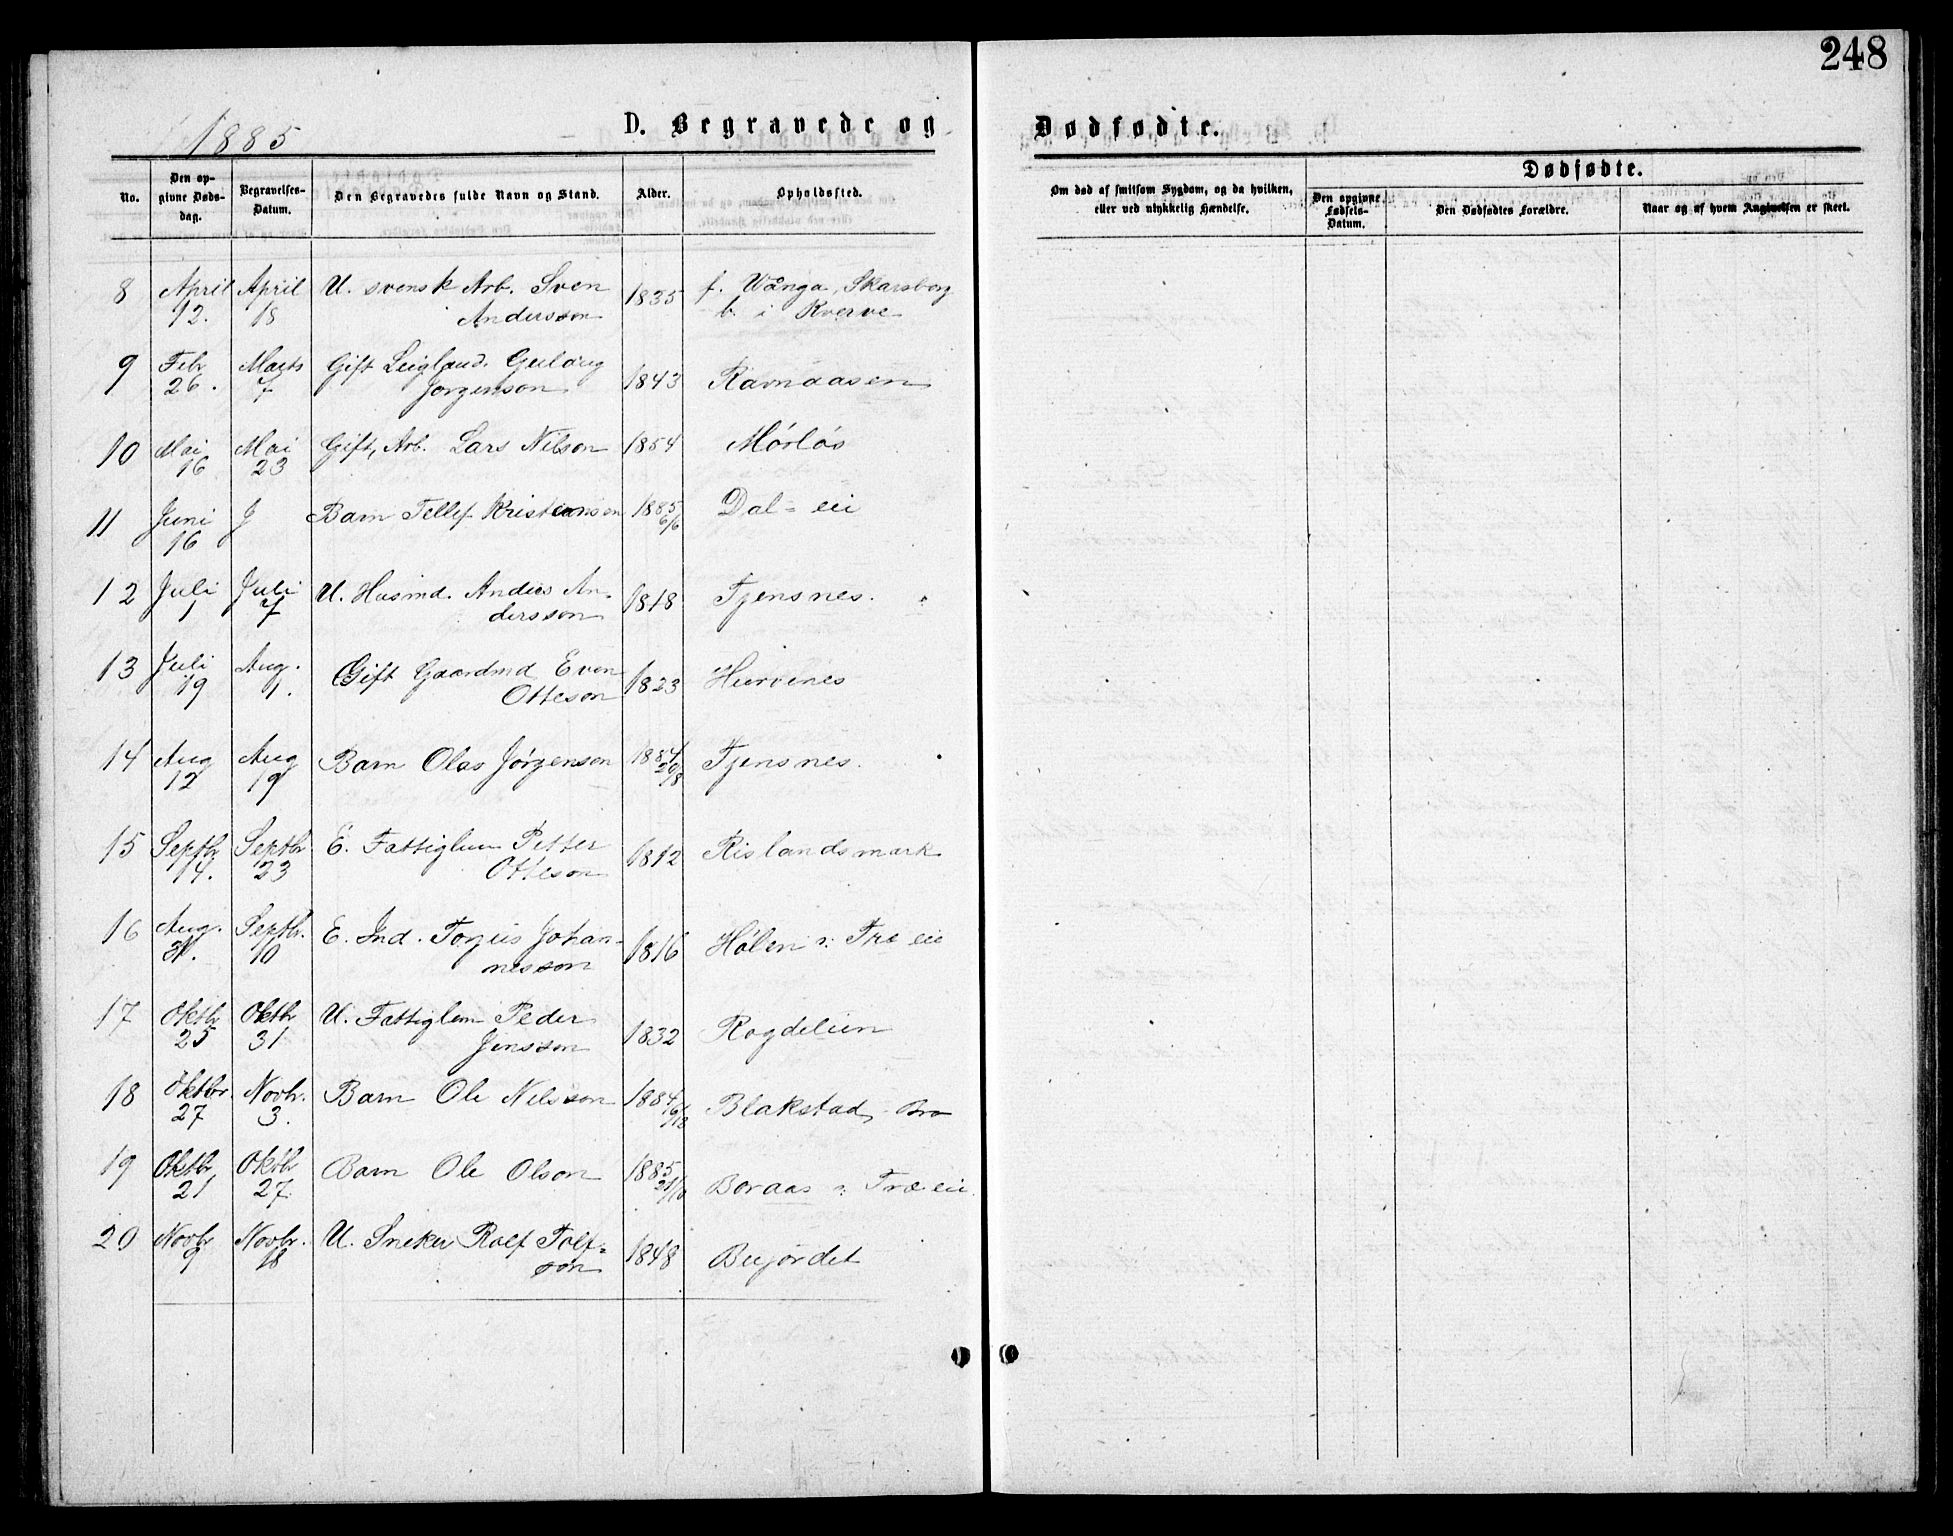 248
1885
D. Begravede og
Dødfødte.
No.
Den op-
givne Døds-
dag.
Begravelses-
Datum.
Den Begravedes fulde Navn og Stand.
Alder.
Opholdssted.
Om død af smitsom Sygdom, og da hvilken,
eller ved ulykkelig Hændelse.
Dødfødte.
Den opgivne
Fødsels-
Datum.
Den Dødfødtes Forældre.
Naar og af hvem Angivelsen er skeet.
8 April April U. svensk Arb. Sven 1835 f. Wånga, Skarsborg
12. 18 Andersson b. i Kverve
9 Febr Marts Gift Leigland. Gulaug 1843 Ravnaasen
26. 7 Jorgenson
10 Mai Mai Gift, Arb. Lars Nilson 1854 Mórlós
16 23
11 Juni J Barn Tellef Kristensen 1885 Dal-eii
16 6/6
12 Juli Juli U. Husmd. Anders An- 1818 Tjensnes.
1 7 dersson
13 Juli Aug. Gift Gaardmd Even 1823 Hurvenes
19 1. Otteson
14 Aug Aug Barn Olas Jórgenson 1884 Tjensnes.
12 19 20/8
15 Septbr Septbr E. Fattiglem Petter 1812 Rislandsmark
14. 23 Otteson
16 Aug. Septbr. E. Ind. Torjus Johan- 1816 Hólen n: Træ eie
31. 10 nesson
17 Oktbr Oktbr U. Fattiglem Peder 1832 Rogdelien
25 31 Jensson
18 Oktbr. Novbr. Barn Ole Nilsson 1884 Blakstad, Bro
27 3. 6/12
19 Oktbr Oktbr Barn Ole Olson 1885 Boraas n: Træ eie
21 27. 21/10
20 Novbr Novbr. U. Sneker Rolf Tolf- 1848 Bujórdet
9 18 son